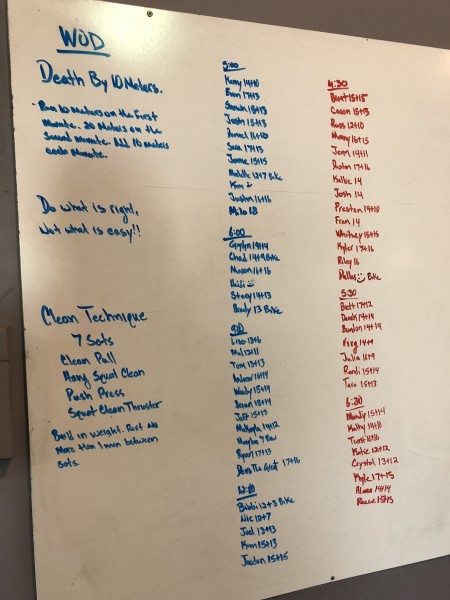 WOD
Death By 10 Meters.
Run 10 Meters on the First
Minute. 20 Meters on the
Second Minute. Add 10 Meters
each Minute.
Do what is right,
Not what is easy!!
Clean Technique
7 Sets
Clean Pull
Hang Squat Clean
Push Press
Squat Clean Thruster
Build in weight. Rest no
More than 1 min between
Sets.
5:00
Kerry 14+10
Fran 17+13
15+13
Josh 15+13
11+10
17+13
15+15
12+7 Bike
Kim
Justin 16+16
Milo 18
6:00
14+14
Chad 14+9 Bike
Mason 16+16
Heidi
Stacy 14+13
Brady 13 Bike
9:00
Lisa 13+6
Mel 12+11
Tom 13+13
Andrew 16+14
Woody 15+14
15+14
Jeff 15+13
Makayla 14+12
7 Row
Ryan 17+13
The Great 17+16
12:00
Bobbi 12+3 Bike
Nic 12+7
Joel 13+13
Kim 15+13
Jordan 15+15
4:30
Brent 15+15
15+13
Russ 12+10
16+15
Jenn 14+11
Dustin 17+16
Kallie 14
Josh 14
Preston 14+10
Fran 14
Whitney 15+15
Kyler 17+16
Riley 16
Dallas Bike
5:30
Brett 17+12
Derek 14+14
Brandon 14+14
14+9
Julia 16+9
Randi 15+14
Tara 15+13
6:30
Mandy 15+14
Kathy 14+8
16+16
Katie 12+12
Crystal 13+12
Kyle 17+15
14+14
Reece 15+15